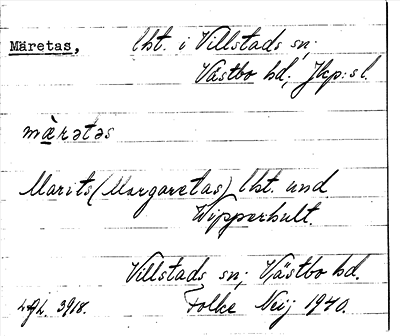 Märetas, lht. i Villstads sn;
Västbo hd; Jkp:s l.
mæ̀rətəs
Marits (Margaretas) lht. und
Wipperhult.
Villstads sn; Västbo hd.
3918. Folke Neij 1940.